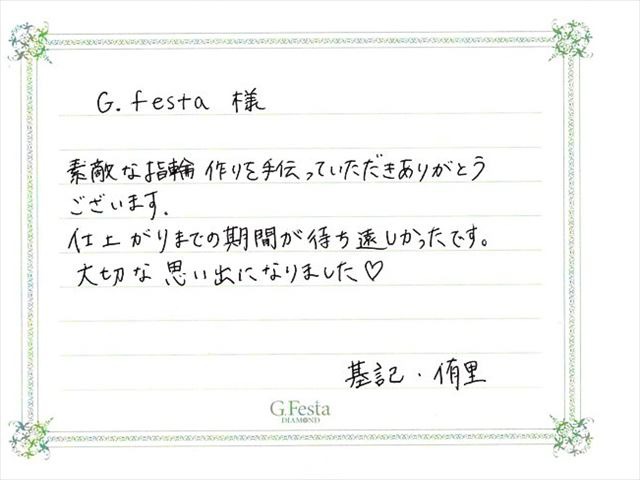 G.festa 様
素敵な指輪作りを手伝っていただきありがとう
ございます.
仕上がりまでの期間が待ち遠しかったです。
大切な思い出になりました♡
基記・侑里
G.Festa
DIAMOND